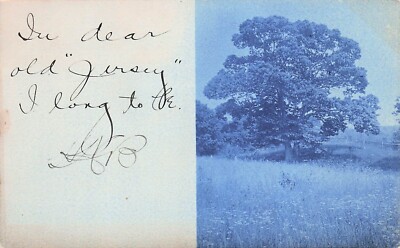 In dear
old "Jersey"
I long to be.